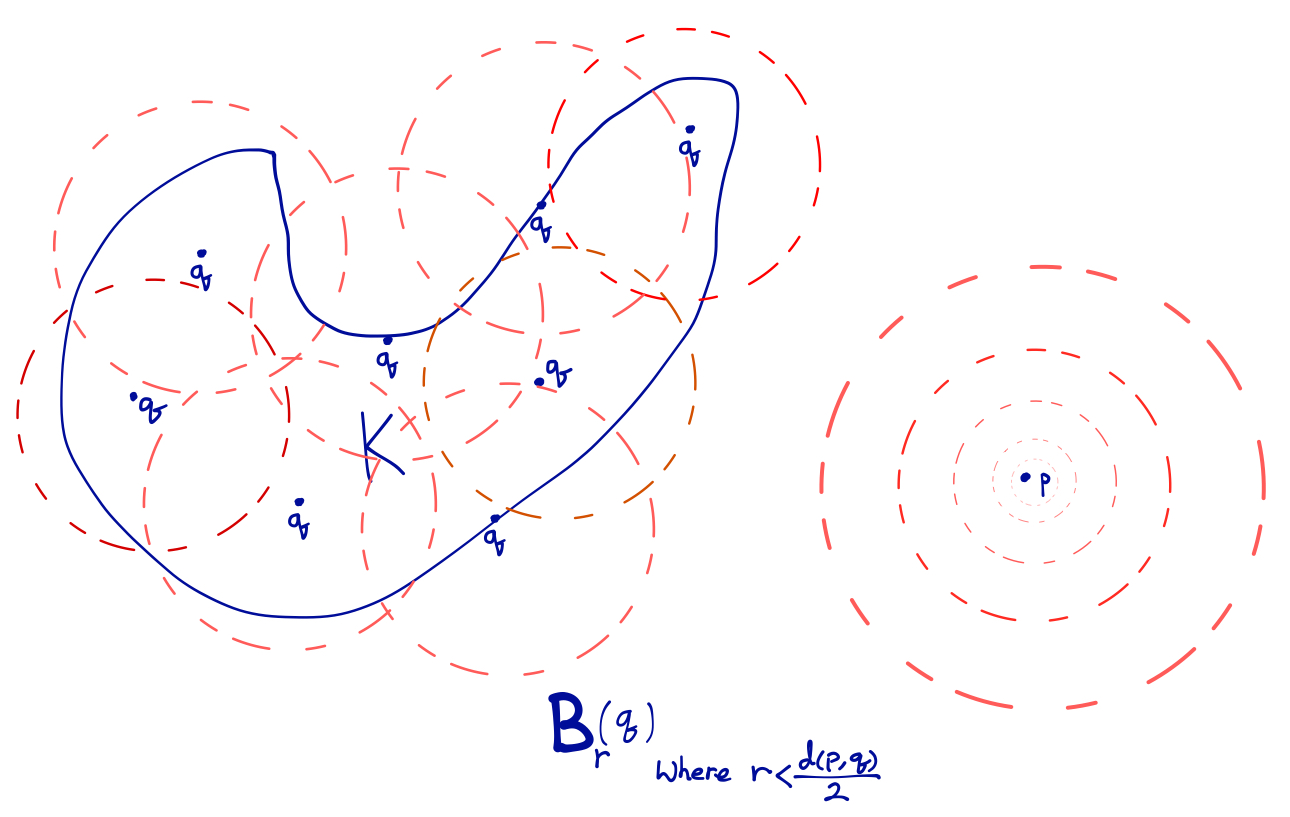 q
q
q
q
q
q
q
K
p
q
q
B_r(q)
where r < d(p,q)/2